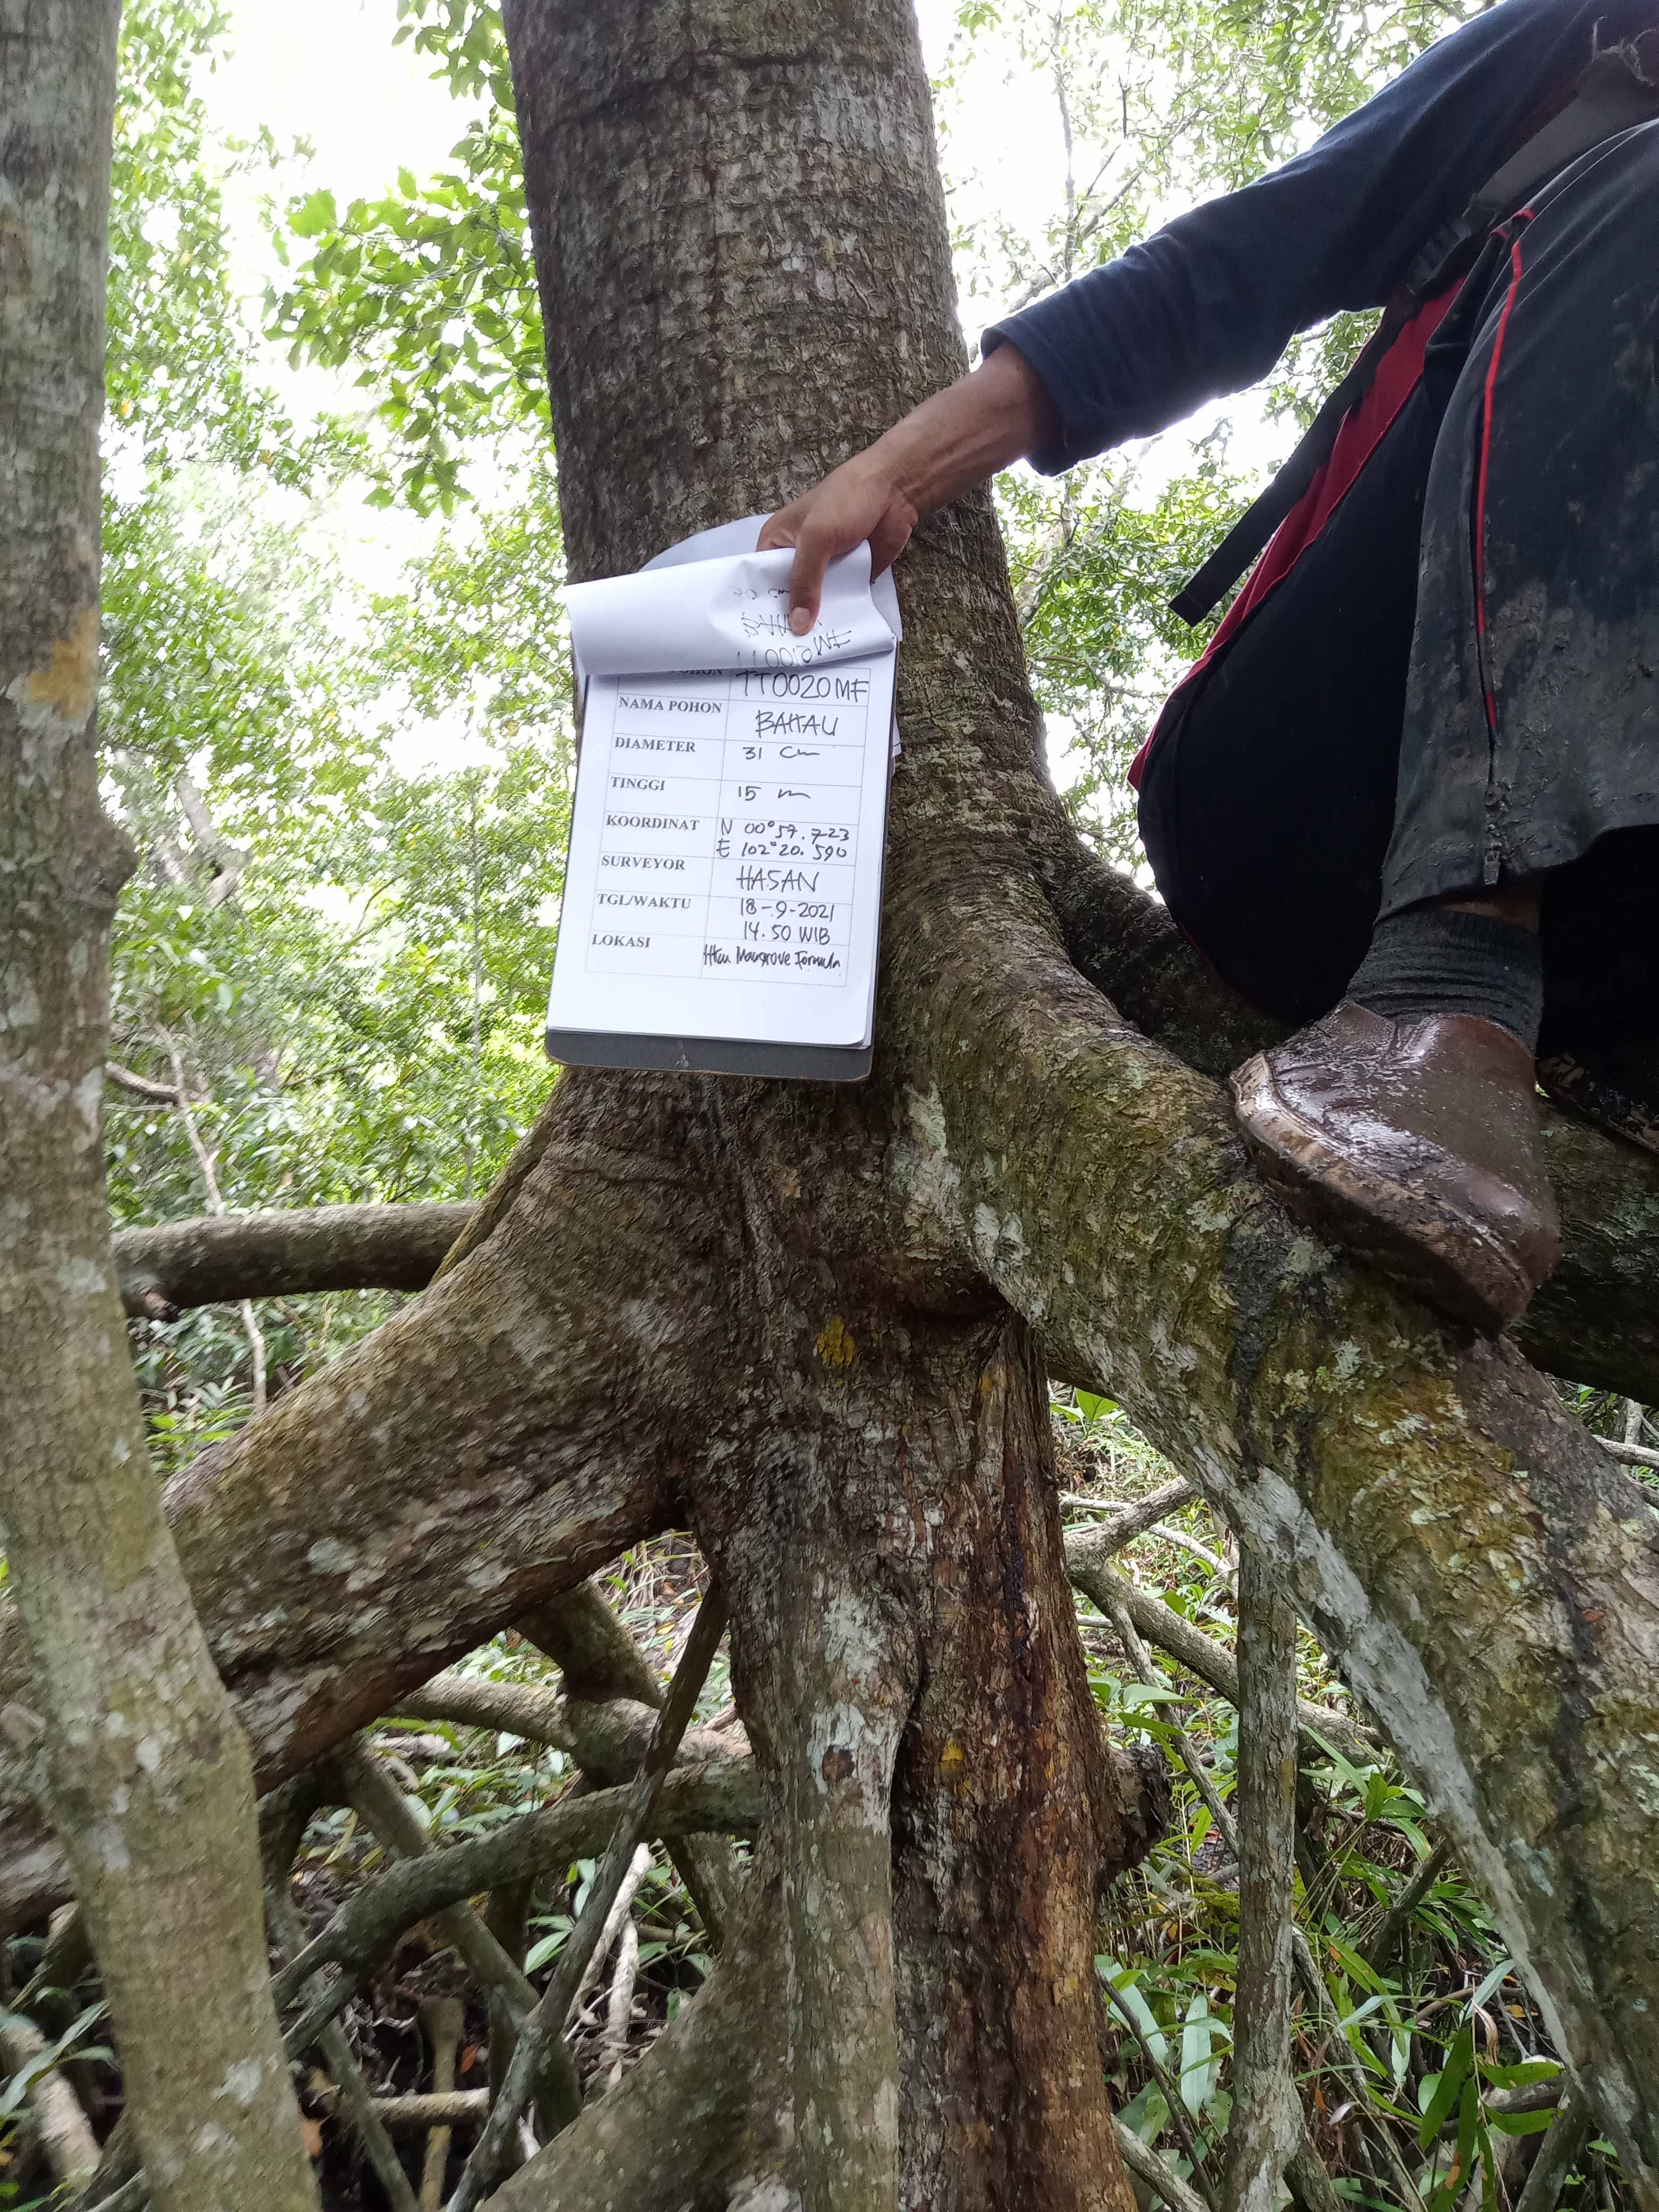 TT0020MF
NAMA POHON BAKAU
DIAMETER 31 cm
TINGGI 15 m
KOORDINAT N 00°57.723
E 102°20.590
SURVEYOR HASAN
TGL/WAKTU 18-9-2021
14.50 WIB
LOKASI Mangrove Formula